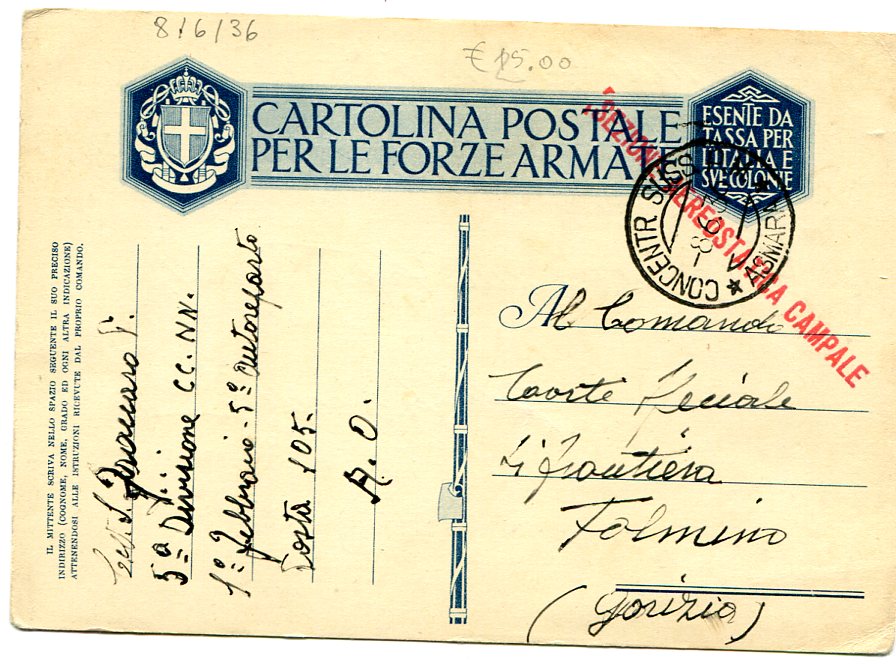 8/6/36
€ 15.00
CARTOLINA POSTALE
PER LE FORZE ARMATE
ESENTE DA
TASSA PER
L'ITALIA E
SVE COLONIE
SEZIONE AEREOSTATICA CAMPALE
CONCENTR SUSS
ASMARA
IL MITTENTE SCRIVA NELLO SPAZIO SEGUENTE IL SUO PRECISO
INDIRIZZO (COGNOME, NOME, GRADO ED OGNI ALTRA INDICAZIONE)
ATTENENDOSI ALLE ISTRUZIONI RICEVUTE DAL PROPRIO COMANDO.
5ª Divisione CC. NN.
1º Febbraio - 5º Autoreparto
Posta 105 -
A. O.
Al Comando
di frontiera
Tolmino
(Gorizia)